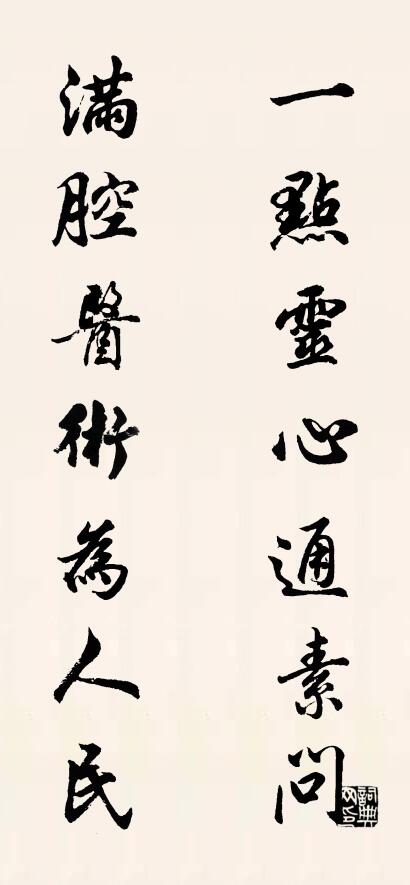 一點靈心通素問
滿腔醫術為人民